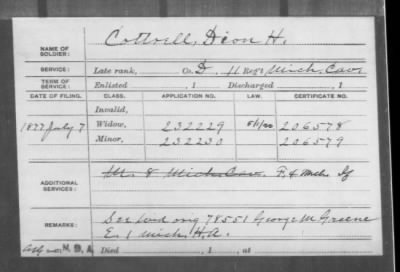 NAME OF SOLDIER: Cottrell, Dion H.
SERVICE: Late rank, Co. D, 11 Reg't Mich. Cav.
TERM OF SERVICE: Enlisted , 1 Discharged , 1
DATE OF FILING. CLASS. APPLICATION NO. LAW. CERTIFICATE NO.
Invalid,
1877 July 7 Widow, 232229 206578
Minor, 232230 206579
ADDITIONAL SERVICES: 8 Mich Cav. F. 4 Mich. If
REMARKS: See wid orig 78551 George M Greene
E. 1 Mich. H.A.
Died , 1 , at